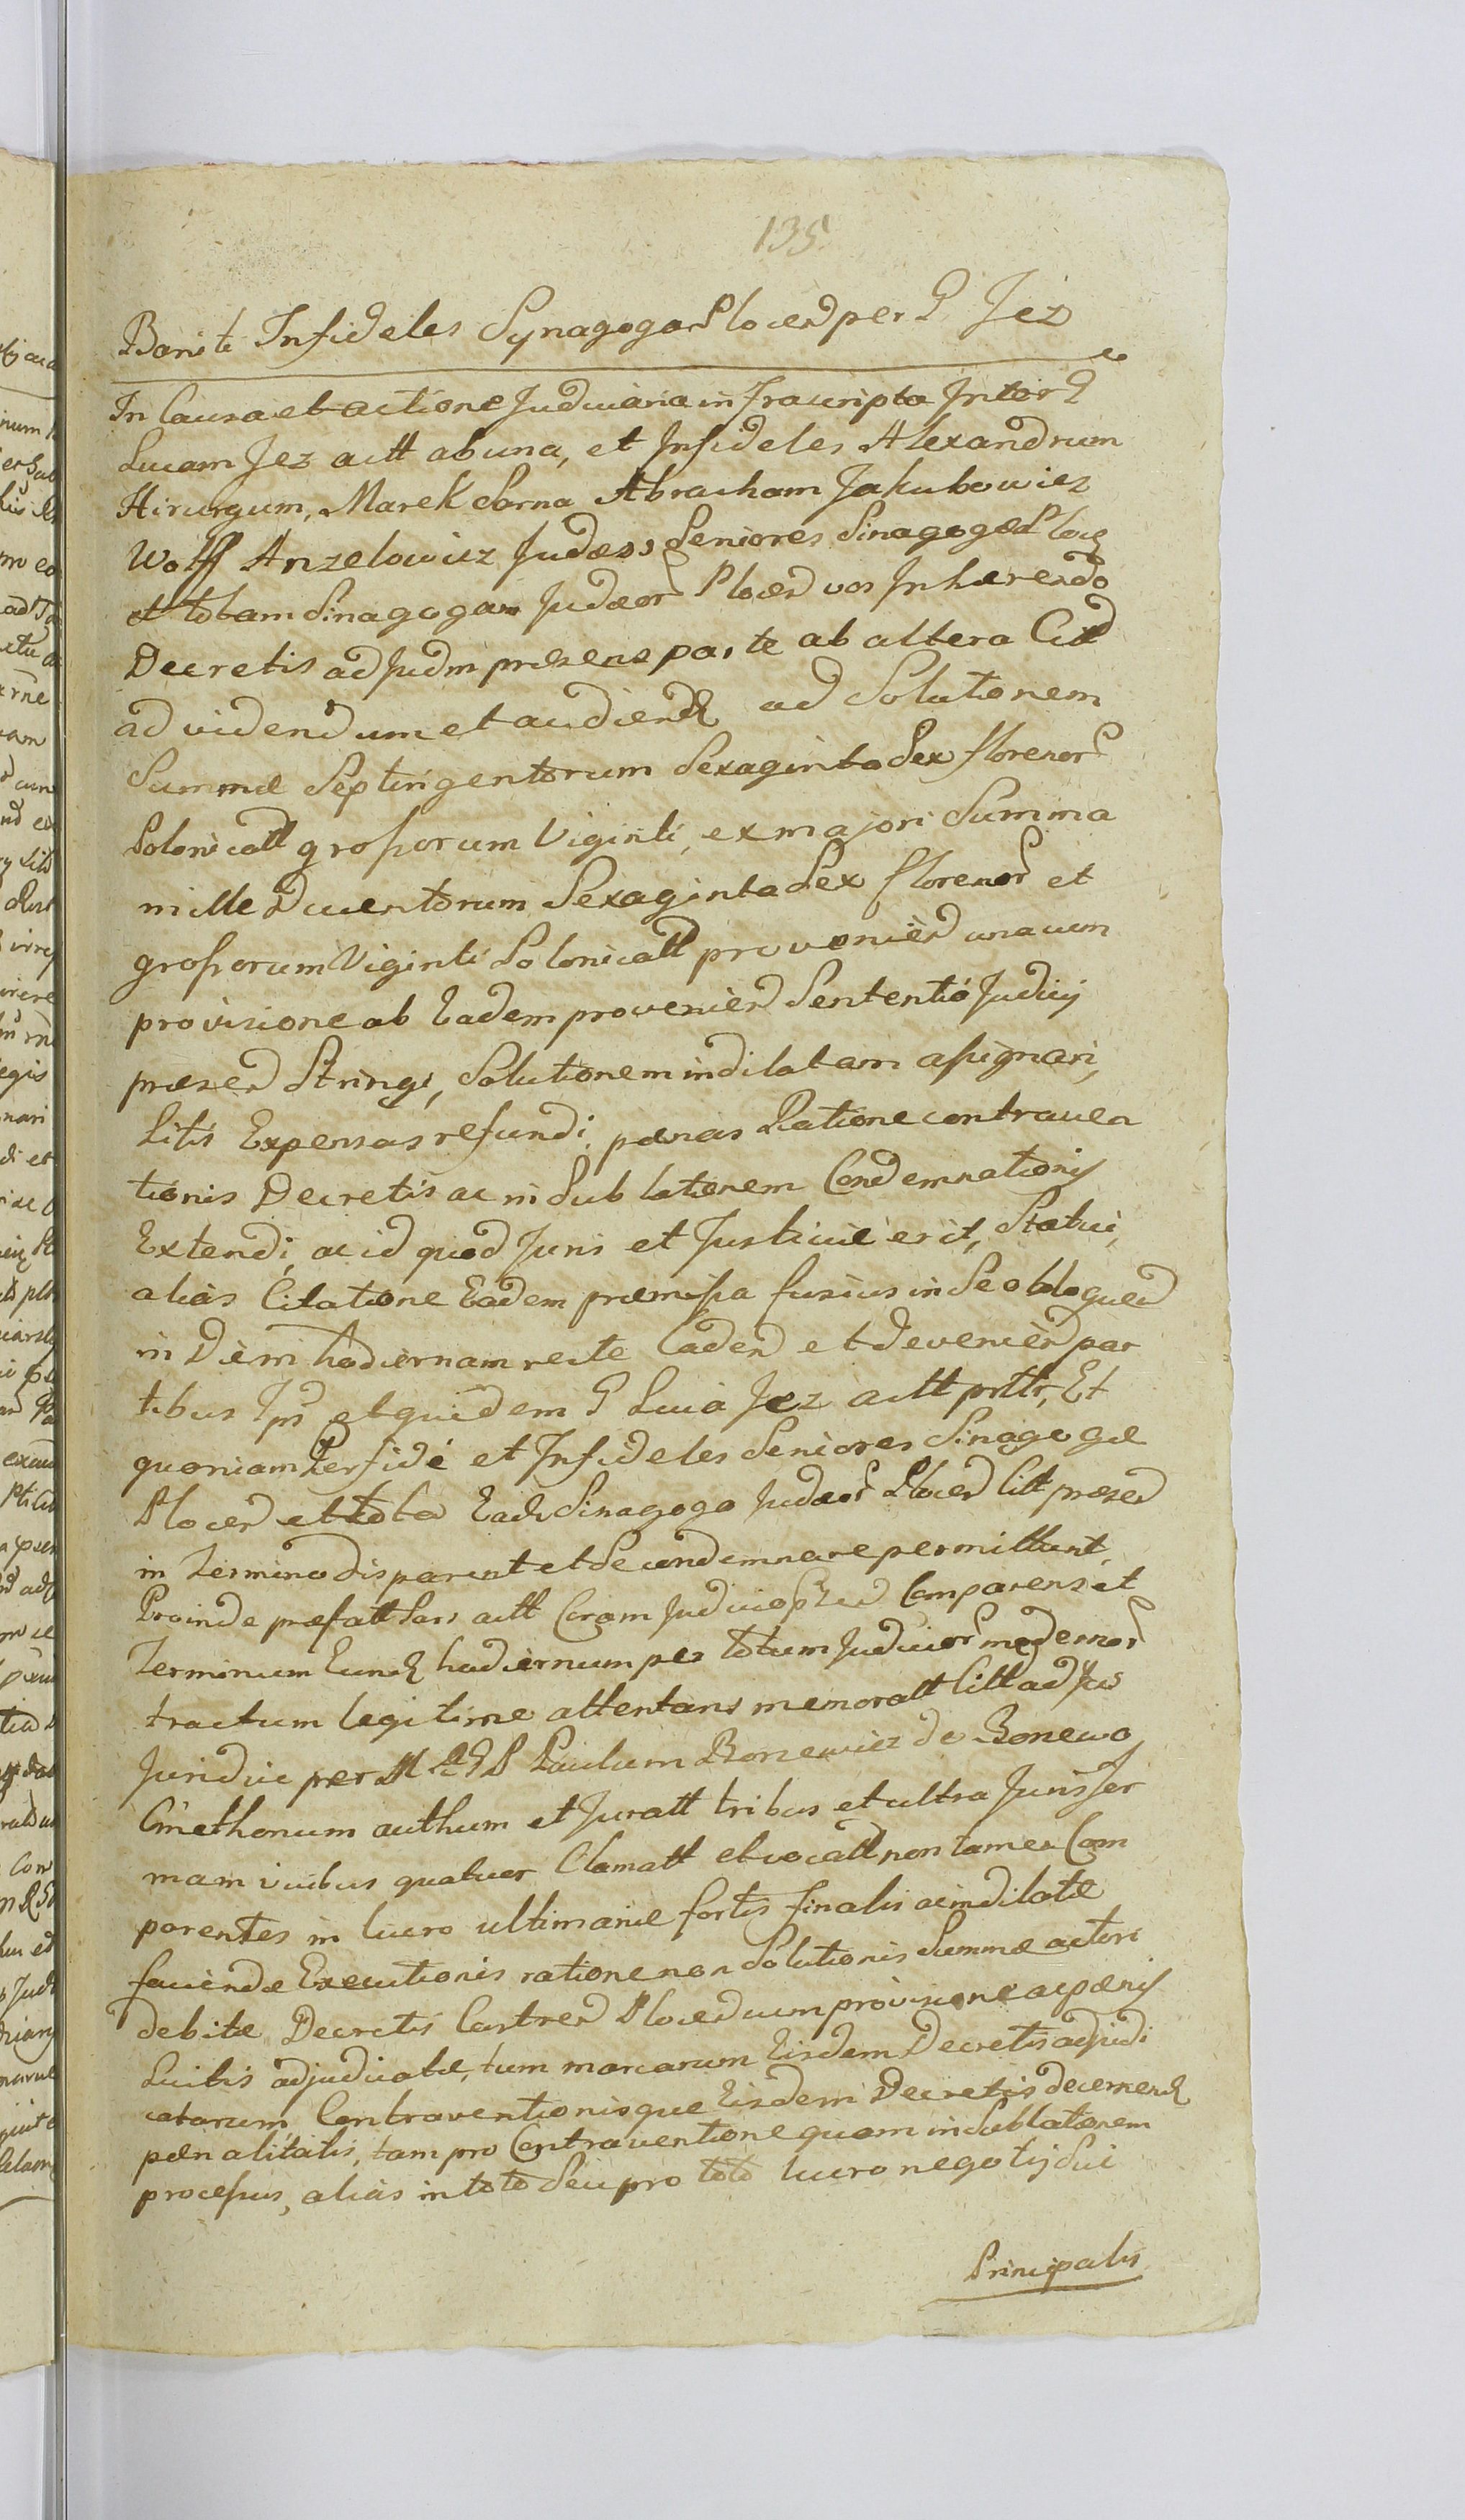 135
Banit Infideles Synagogae Plocen per G Jez
In Causa et actione Judiciaria infrascripta Inter G
Lucam Jez actt ab una, et Infideles Alexandrum
Hirurgum, Marek Sarna Abracham Jakubowicz
Wolff Anzelowicz Judaeos Seniores Sinagogae Ploc
et totam Sinagogam Judaeor Plocen vos Inhaerendo
Decretis ad Judm praesens parte ab altera Citt
ad videndum et audiend ad Solutionem
Summae Septingentorum Sexaginta Sex florenor
Polonicall grossorum Viginti, ex majori Summa
mille Ducentorum Sexaginta Sex florenor et
grossorum Viginti Polonicall provenien una cum
provisione ab Eadem provenien Sententio Judicij
praesen Stringi, Solutionem indilatam assignari,
Litis Expensas refundi, paenas Ratione contraven
tionis Decretis ac in Sublationem Condemnationis
Extendi, ac id quod Juris et Justiciae erit, Statui,
alias Citatione Eadem praemissa fusius in Se obloquen
in Diem hodiernam recte Caden et devenien par
tibus Ips et quidem G Luca Jez actt prttr, Et
quoniam Perfidi et Infideles Seniores Sinagogae
Plocen et tota Ead Sinagoga Judaeor Plocen Citt praesen
in Termino disparent et Se condemnare permittunt,
Proinde praefatt Pars actt Coram Judicio Comparens et
Terminum Eund hodiernum per totum Judicior modernor
tractum legitime attentans memoratt Citt ad
Juridice per M Paulum Bonewicz de Bonewo
Cmethonum authum et Juratt tribus et ultra Juris for
mam vicibus quatuor Clamatt et vocatt non tamen Com
parentes in lucro ultimariae fortis finalis ac indilatae
faciendae Executionis ratione non Solutionis Summae actori
debitae Decretis Castren Plocen cum provisione ac paenis
Lucitis adjudicatae, tum marcarum Eisdem Decretis adjudi
catarum, Contraventionisque Eisdem Decretis decernend
paenalitatis, tam pro Contraventione quam in Sublationem
processus, alias in toto Seu pro toto lucro negotij Sui
Principalis